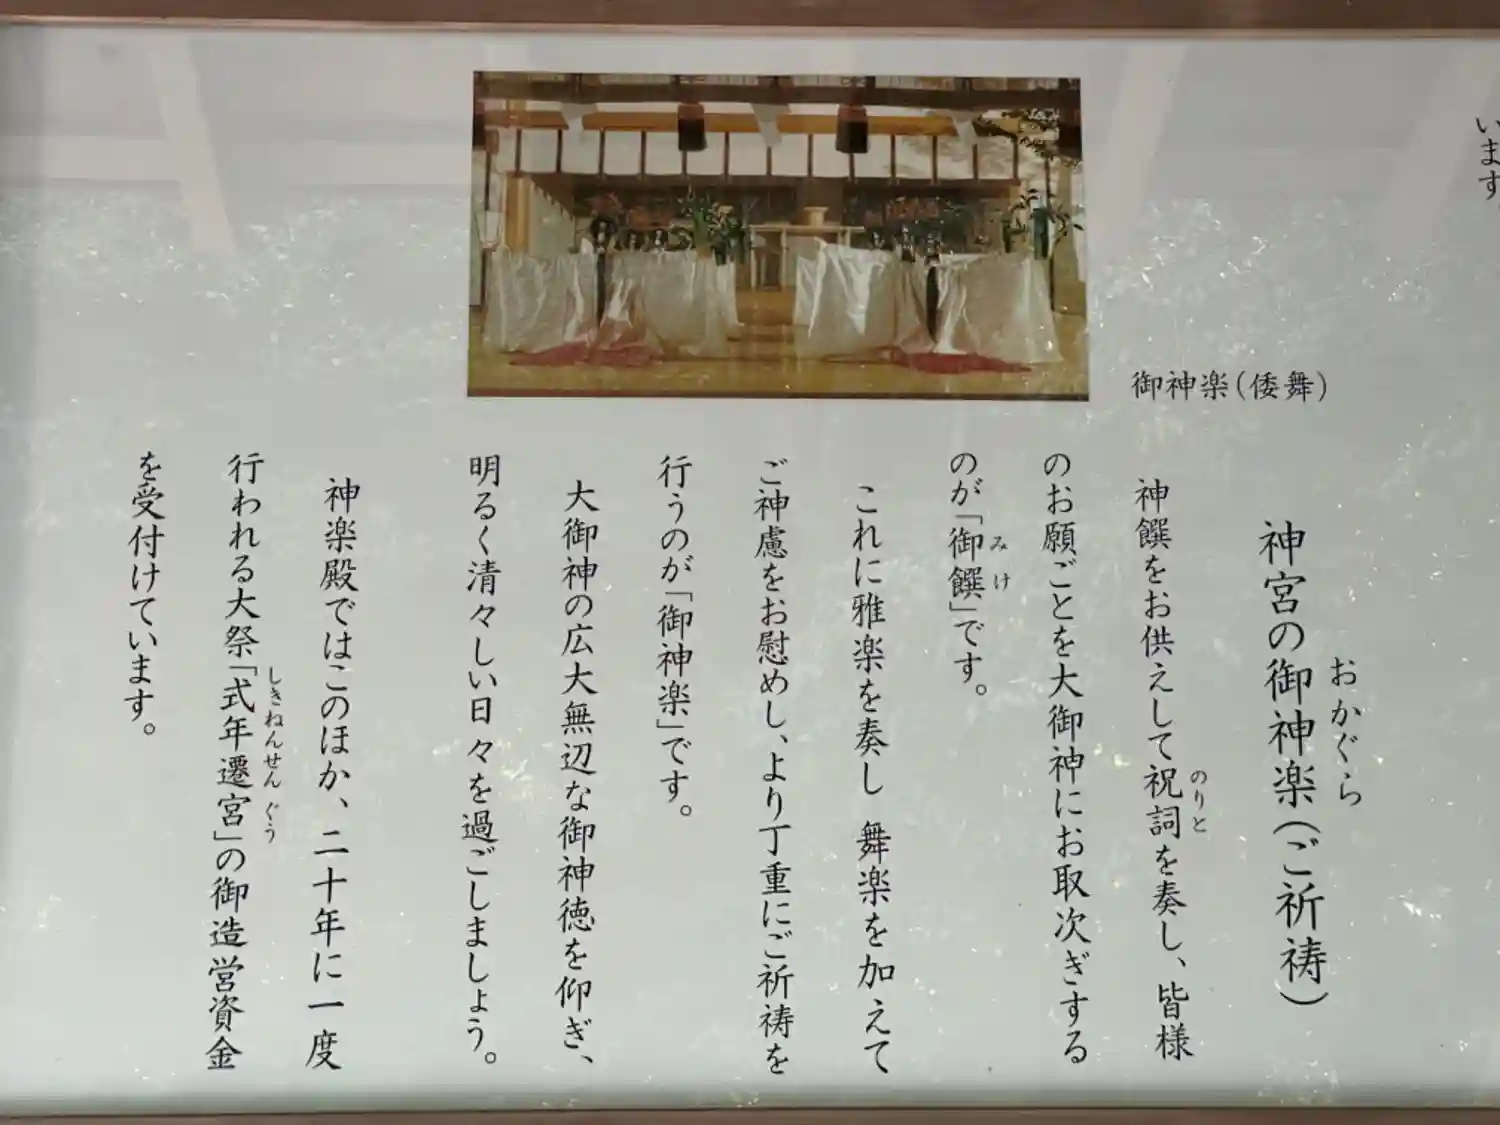 います
御神楽(倭舞)
神宮の御神楽(ご祈祷)
おかぐら
神饌をお供えして祝詞を奏し、皆様
のりと
のお願ごとを大御神にお取次ぎする
のが「御饌」です。
みけ
これに雅楽を奏し 舞楽を加えて
ご神慮をお慰めし、より丁重にご祈祷を
行うのが「御神楽」です。
大御神の広大無辺な御神徳を仰ぎ、
明るく清々しい日々を過ごしましょう。
神楽殿ではこのほか、二十年に一度
行われる大祭「式年遷宮」の御造営資金
しきねんせんぐう
を受付けています。